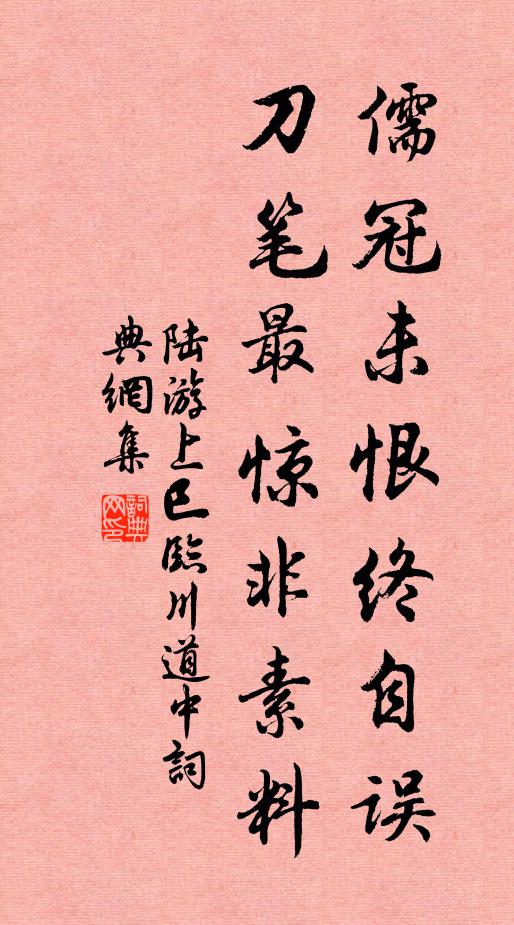 儒冠未恨终自误
刀笔最惊非素料
陆游上巳臨川道中詞
典網集
詞典网印